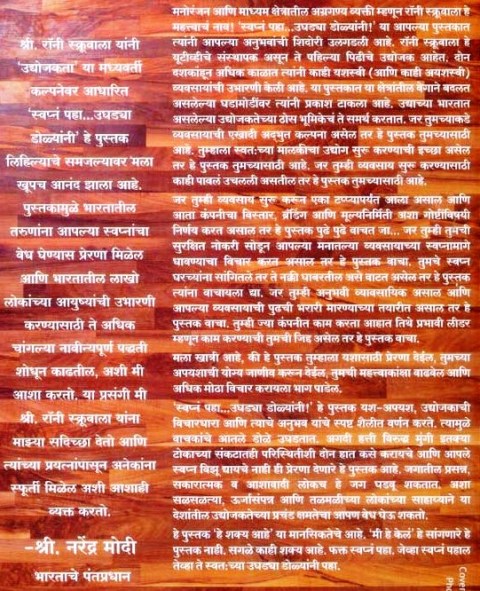 श्री. रॉनी स्क्रूवाला यांनी
'उद्योजकता' या मध्यवर्ती
कल्पनेवर आधारित
'स्वप्नं पहा...उघड्या
डोळ्यांनी' हे पुस्तक
लिहिल्याचे समजल्यावर 'मला
खूपच आनंद झाला आहे.
पुस्तकामुळे भारतातील
तरुणांना आपल्या स्वप्नांचा
वेध घेण्यास प्रेरणा मिळेल
आणि भारतातील लाखो
लोकांच्या आयुष्यांची उभारणी
करण्यासाठी ते अधिक
चांगल्या नावीन्यपूर्ण पद्धती
शोधून काढतील, अशी मी
आशा करतो. या प्रसंगी मी
श्री. रॉनी स्क्रूवाला यांना
माझ्या सदिच्छा देतो आणि
त्यांच्या प्रयत्नांपासून अनेकांना
स्फूर्ती मिळेल अशी आशाही
व्यक्त करतो.
–श्री. नरेंद्र मोदी
भारताचे पंतप्रधान
मनोरंजन आणि माध्यम क्षेत्रातील अग्रगण्य व्यक्ती म्हणून रॉनी स्क्रूवाला हे
महत्त्वाचं नाव! 'स्वप्नं पहा...उघड्या डोळ्यांनी!' या आपल्या पुस्तकात
त्यांनी आपल्या अनुभवांची शिदोरी उलगडली आहे. रॉनी स्क्रूवाला हे
यूटीव्हीचे संस्थापक असून ते पहिल्या पिढीचे उद्योजक आहेत. दोन
दशकांहून अधिक काळात त्यांनी काही यशस्वी (आणि काही अयशस्वी)
व्यवसायांची उभारणी केली आहे. या पुस्तकात या क्षेत्रांतील वेगाने बदलत
असलेल्या घडामोडींवर त्यांनी प्रकाश टाकला आहे. उद्याच्या भारतात
असलेल्या उद्योजकतेच्या ठोस भूमिकेचं ते समर्थ करतात. जर तुमच्याकडे
व्यवसायाची एखादी अद्भुत कल्पना असेल तर हे पुस्तक तुमच्यासाठी
आहे. तुम्हाला स्वत:च्या मालकीचा उद्योग सुरू करण्याची इच्छा असेल
तर हे पुस्तक तुमच्यासाठी आहे. जर तुम्ही व्यवसाय सुरू करण्यासाठी
काही पावलं उचलली असतील तर हे पुस्तक तुमच्यासाठी आहे.
जर तुम्ही व्यवसाय सुरू करून एका टप्प्यापर्यंत आला असाल आणि
आता कंपनीचा विस्तार, ब्रँडिंग आणि मूल्यनिर्मिती अशा गोष्टींविषयी
निर्णय करत असाल तर हे पुस्तक पुढे पुढे वाचत जा... जर तुम्ही तुमची
सुरक्षित नोकरी सोडून आपल्या मनातल्या व्यवसायाच्या स्वप्नामागे
धावण्याचा विचार करत असाल तर हे पुस्तक वाचा. तुमचे स्वप्न
घरच्यांना सांगितले तर ते नक्की घाबरतील असे वाटत असेल तर हे पुस्तक
त्यांना वाचायला द्या. जर तुम्ही अनुभवी व्यावसायिक असाल आणि
आपल्या व्यवसायाची पुढची भरारी मारण्याच्या तयारीत असाल तर हे
पुस्तक वाचा. तुम्ही ज्या कंपनीत काम करता आहात तिथे प्रभावी लीडर
म्हणून काम करण्याची तुमची जिद्द असेल तर हे पुस्तक वाचा.
मला खात्री आहे, की हे पुस्तक तुम्हाला यशासाठी प्रेरणा देईल, तुमच्या
अपयशाची योग्य जाणीव करून देईल, तुमची महत्त्वाकांक्षा वाढवेल आणि
अधिक मोठा विचार करायला भाग पाडेल.
'स्वप्नं पहा...उघड्या डोळ्यांनी!' हे पुस्तक यश-अपयश, उद्योजकाची
विचारधारा आणि त्याचे अनुभव यांचे स्पष्ट शैलीत वर्णन करते. त्यामुळे
वाचकांचे आतले डोळे उघडतात. अगदी हत्ती विरुद्ध मुंगी इतक्या
टोकाच्या संकटातही परिस्थितीशी दोन हात कसे करायचे आणि आपले
स्वप्न विझू द्यायचे नाही ही प्रेरणा देणारे हे पुस्तक आहे. जगातील प्रसन्न,
सकारात्मक व आशावादी लोकच हे जग घडवू शकतात. अशा
सळसळत्या, ऊर्जासंपन्न आणि तळमळीच्या लोकांच्या साहाय्याने या
देशांतील उद्योजकतेच्या प्रचंड क्षमतेचा आपण वेध घेऊ शकतो.
हे पुस्तक 'हे शक्य आहे' या मानसिकतेचे आहे. 'मी हे केलं' हे सांगणारे हे
पुस्तक नाही. सगळे काही शक्य आहे. फक्त स्वप्नं पहा. जेव्हा स्वप्नं पहाल
तेव्हा ते स्वत:च्या उघड्या डोळ्यांनी पहा.
Cover